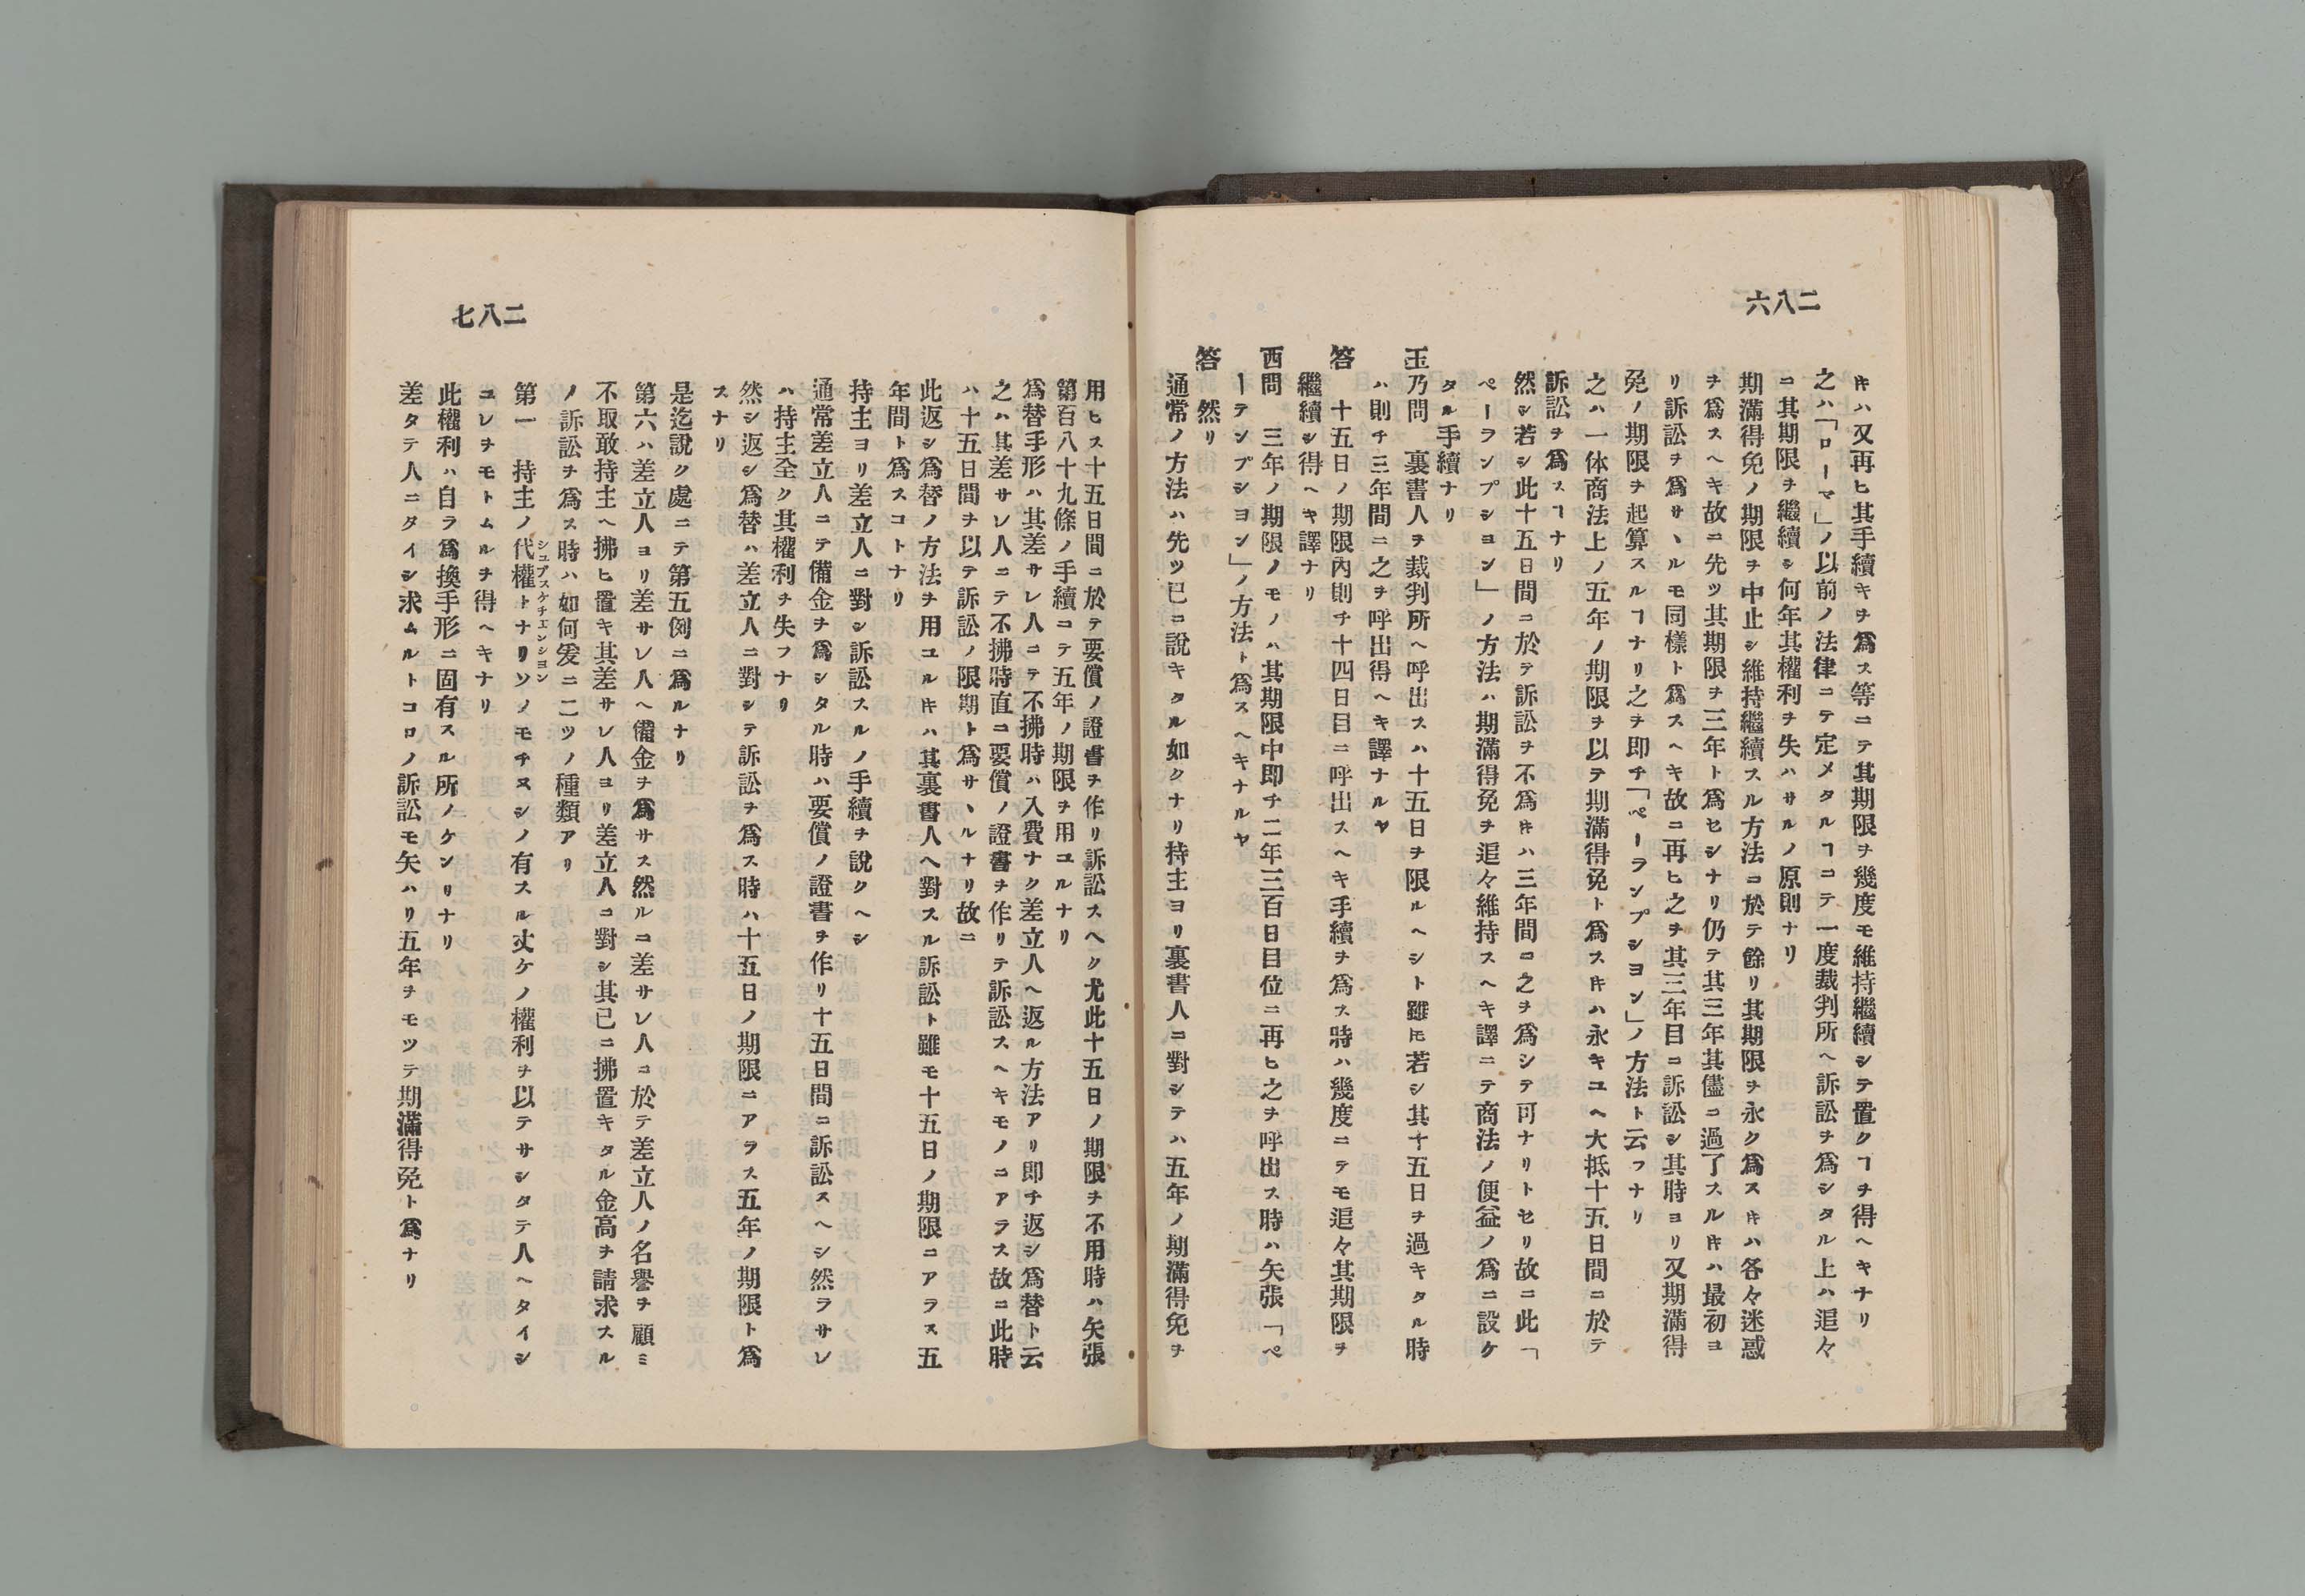 二八六
𪜈ハ又再ヒ其手續キヲ爲ス等ニテ其期限ヲ幾度モ維持繼續シテ置クヿヲ得ヘキナリ
之ハ「ローマ」ノ以前ノ法律ニテ定メタルヿニテ一度裁判所ヘ訴訟ヲ爲シタル上ハ追々
ニ其期限ヲ繼續シ何年其權利ヲ失ハサルノ原則ナリ
期滿得免ノ期限ヲ中止シ維持繼續スル方法ニ於テ餘リ其期限ヲ永ク爲スキハ各々迷惑
ヲ爲スヘキ故ニ先ツ其期限ヲ三年ト爲セシナリ仍テ其三年其儘ニ過了スルキハ最初ヨ
リ訴訟ヲ爲サヽルモ同樣ト爲スヘキ故ニ再ヒ之ヲ其三年目ニ訴訟シ其時ヨリ又期滿得
免ノ期限ヲ起算スルヿナリ之ヲ即チ「ペーランプシヨン」ノ方法ト云フナリ
之ハ一体商法上ノ五年ノ期限ヲ以テ期滿得免ト爲スキハ永キユヘ大抵十五日間ニ於テ
訴訟ヲ爲スヿナリ
然シ若シ此十五日間ニ於テ訴訟ヲ不爲キハ三年間ニ之ヲ爲シテ可ナリトセリ故ニ此「
ペーランプシヨン」ノ方法ハ期滿得免ヲ追々維持スヘキ譯ニテ商法ノ便益ノ爲ニ設ケ
タル手續ナリ
玉乃問 裏書人ヲ裁判所ヘ呼出スハ十五日ヲ限ルヘシト雖𪜈若シ其十五日ヲ過キタル時
ハ則チ三年間ニ之ヲ呼出得ヘキ譯ナルヤ
答 十五日ノ期限內則チ十四日目ニ呼出スヘキ手續ヲ爲ス時ハ幾度ニテモ追々其期限ヲ
繼續シ得ヘキ譯ナリ
西問 三年ノ期限ノモノハ其期限中即チ二年三百日目位ニ再ヒ之ヲ呼出ス時ハ矢張「ペ
ーテンプシヨン」ノ方法ト爲スヘキナルヤ
答 然リ
通常ノ方法ハ先ツ已ニ說キタル如クナリ持主ヨリ裏書人ニ對シテハ五年ノ期滿得免ヲ
二八七
用ヒス十五日間ニ於テ要償ノ證書ヲ作リ訴訟スヘク尤此十五日ノ期限ヲ不用時ハ矢張
第百八十九條ノ手續ニテ五年ノ期限ヲ用ユルナリ
爲替手形ハ其差サレ人ニテ不拂時ハ入費ナク差立人ヘ返ル方法アリ即チ返シ爲替ト云
之ハ其差サレ人ニテ不拂時直ニ要償ノ證書ヲ作リテ訴訟スヘキモノニアラス故ニ此時
ハ十五日間ヲ以テ訴訟ノ限期ト爲サヽルナリ故ニ
此返シ爲替ノ方法ヲ用ユルキハ其裏書人ヘ對スル訴訟ト雖モ十五日ノ期限ニアラス五
年間ト爲スコトナリ
持主ヨリ差立人ニ對シ訴訟スルノ手續ヲ說クヘシ
通常差立人ニテ備金ヲ爲シタル時ハ要償ノ證書ヲ作リ十五日間ニ訴訟スヘシ然ラサレ
ハ持主全ク其權利ヲ失フナリ
然シ返シ爲替ハ差立人ニ對シテ訴訟ヲ爲ス時ハ十五日ノ期限ニアラス五年ノ期限ト爲
スナリ
是迄說ク處ニテ第五例ニ爲ルナリ
第六ハ差立人ヨリ差サレ人ヘ備金ヲ爲サス然ルニ差サレ人ニ於テ差立人ノ名譽ヲ顧ミ
不取敢持主ヘ拂ヒ置キ其差サレ人ヨリ差立人ニ對シ其已ニ拂置キタル金高ヲ請求スル
ノ訴訟ヲ爲ス時ハ如何爰ニ二ツノ種類アリ
シユブスケチエンシヨン
第一 持主ノ代權トナリソノモチヌシノ有スル丈ケノ權利ヲ以テサシタテ人ヘタイシ
コレヲモトムルヲ得ヘキナリ
此權利ハ自ラ爲換手形ニ固有スル所ノケンリナリ
差タテ人ニタイシ求ムルトコロノ訴訟モ矢ハリ五年ヲモツテ期滿得免ト爲ナリ